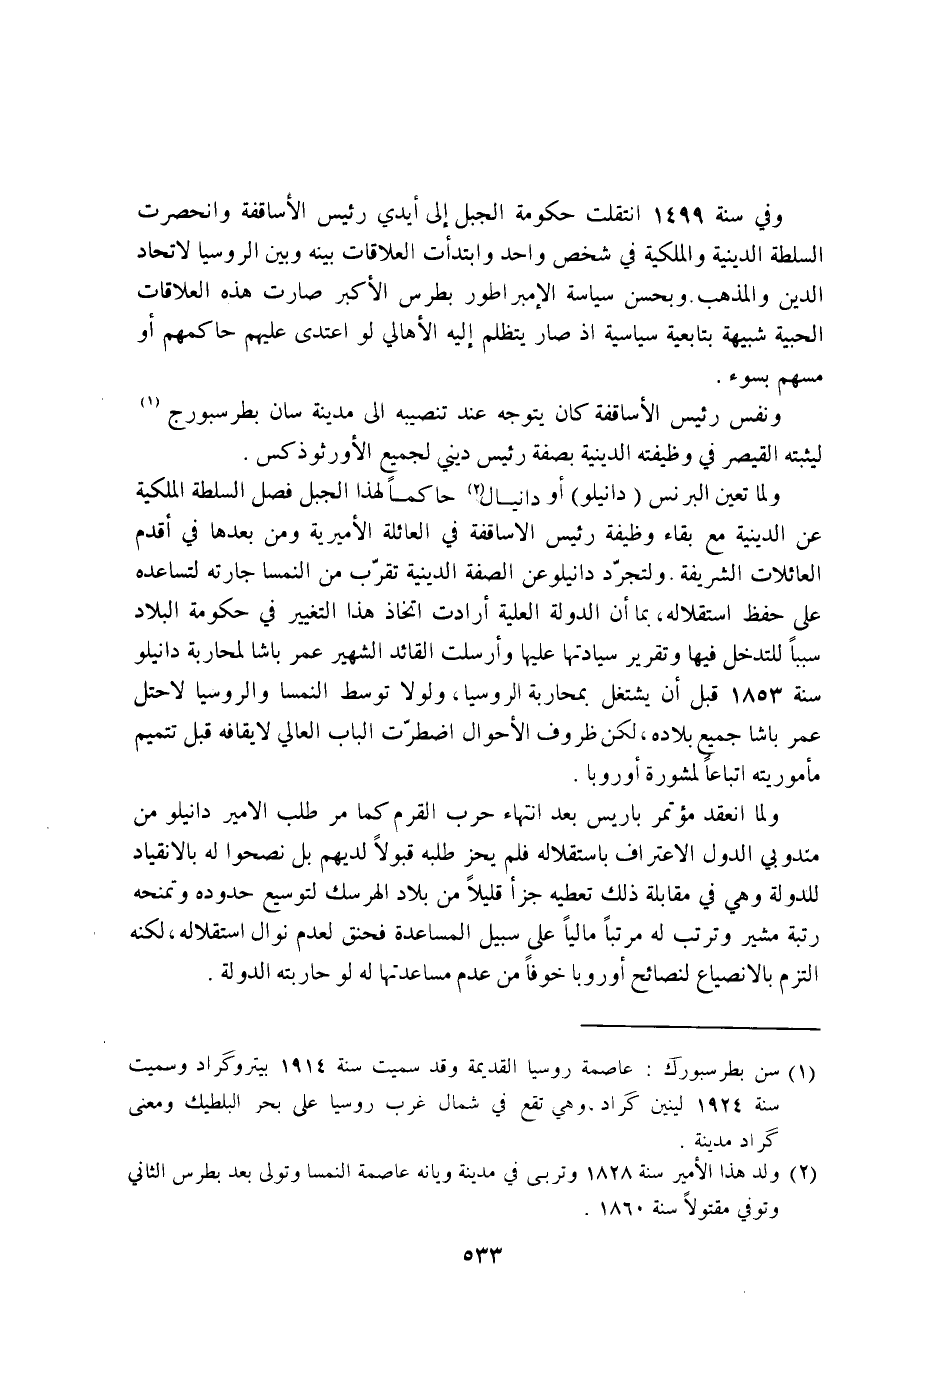 وفي سنة ١٤٩٩ انتقلت حكومة الجبل إلى أيدي رئيس الأساقفة وانحصرت
السلطة الدينية والملكية في شخص واحد وابتدأت العلاقات بينه وبين الروسيا لاتحاد
الدين والمذهب. وبحسن سياسة الإمبراطور بطرس الأكبر صارت هذه العلاقات
الحبية شبيهة بتابعية سياسية اذ صار يتظلم إليه الأهالي لو اعتدى عليهم حاكمهم أو
مسهم بسوء .
ونفس رئيس الأساقفة كان يتوجه عند تنصيبه الى مدينة سان بطرسبورج (١)
ليثبته القيصر في وظيفته الدينية بصفة رئيس ديني لجميع الأورثوذكس .
ولما تعين البرنس ( دانيلو) أو دانيـال(٢) حاكمـاً لهذا الجبل فصل السلطة الملكية
عن الدينية مع بقاء وظيفة رئيس الاساقفة في العائلة الأميرية ومن بعدها في أقدم
العائلات الشريفة . ولتجرّد دانيلو عن الصفة الدينية تقرّب من النمسا جارته لتساعده
على حفظ استقلاله، بما أن الدولة العلية أرادت اتخاذ هذا التغيير في حكومة البلاد
سبباً للتدخل فيها وتقرير سيادتها عليها وأرسلت القائد الشهير عمر باشا لمحاربة دانيلو
سنة ١٨٥٣ قبل أن يشتغل بمحاربة الروسيا، ولولا توسط النمسا والروسيا لاحتل
عمر باشا جميع بلاده، لكن ظروف الأحوال اضطرّت الباب العالي لايقافه قبل تتميم
مأموريته اتباعاً لمشورة أوروبا .
ولما انعقد مؤتمر باريس بعد انتهاء حرب القرم كما مر طلب الامير دانيلو من
مندوبي الدول الاعتراف باستقلاله فلم يحز طلبه قبولاً لديهم بل نصحوا له بالانقياد
للدولة وهي في مقابلة ذلك تعطيه جزأ قليلاً من بلاد الهرسك لتوسيع حدوده وتمنحه
رتبة مشير وترتب له مرتباً مالياً على سبيل المساعدة فحنق لعدم نوال استقلاله، لكنه
التزم بالانصياع لنصائح أوروبا خوفاً من عدم مساعدتها له لو حاربته الدولة .
(١) سن بطرسبورگ : عاصمة روسيا القديمة وقد سميت سنة ١٩١٤ بيتروگراد وسميت
سنة ١٩٢٤ لينين گراد . وهي تقع في شمال غرب روسيا على بحر البلطيك ومعنى
گراد مدينة .
(٢) ولد هذا الأمير سنة ١٨٢٨ وتربى في مدينة ويانه عاصمة النمسا وتولى بعد بطرس الثاني
وتوفي مقتولاً سنة ١٨٦٠ .
٥٣٣